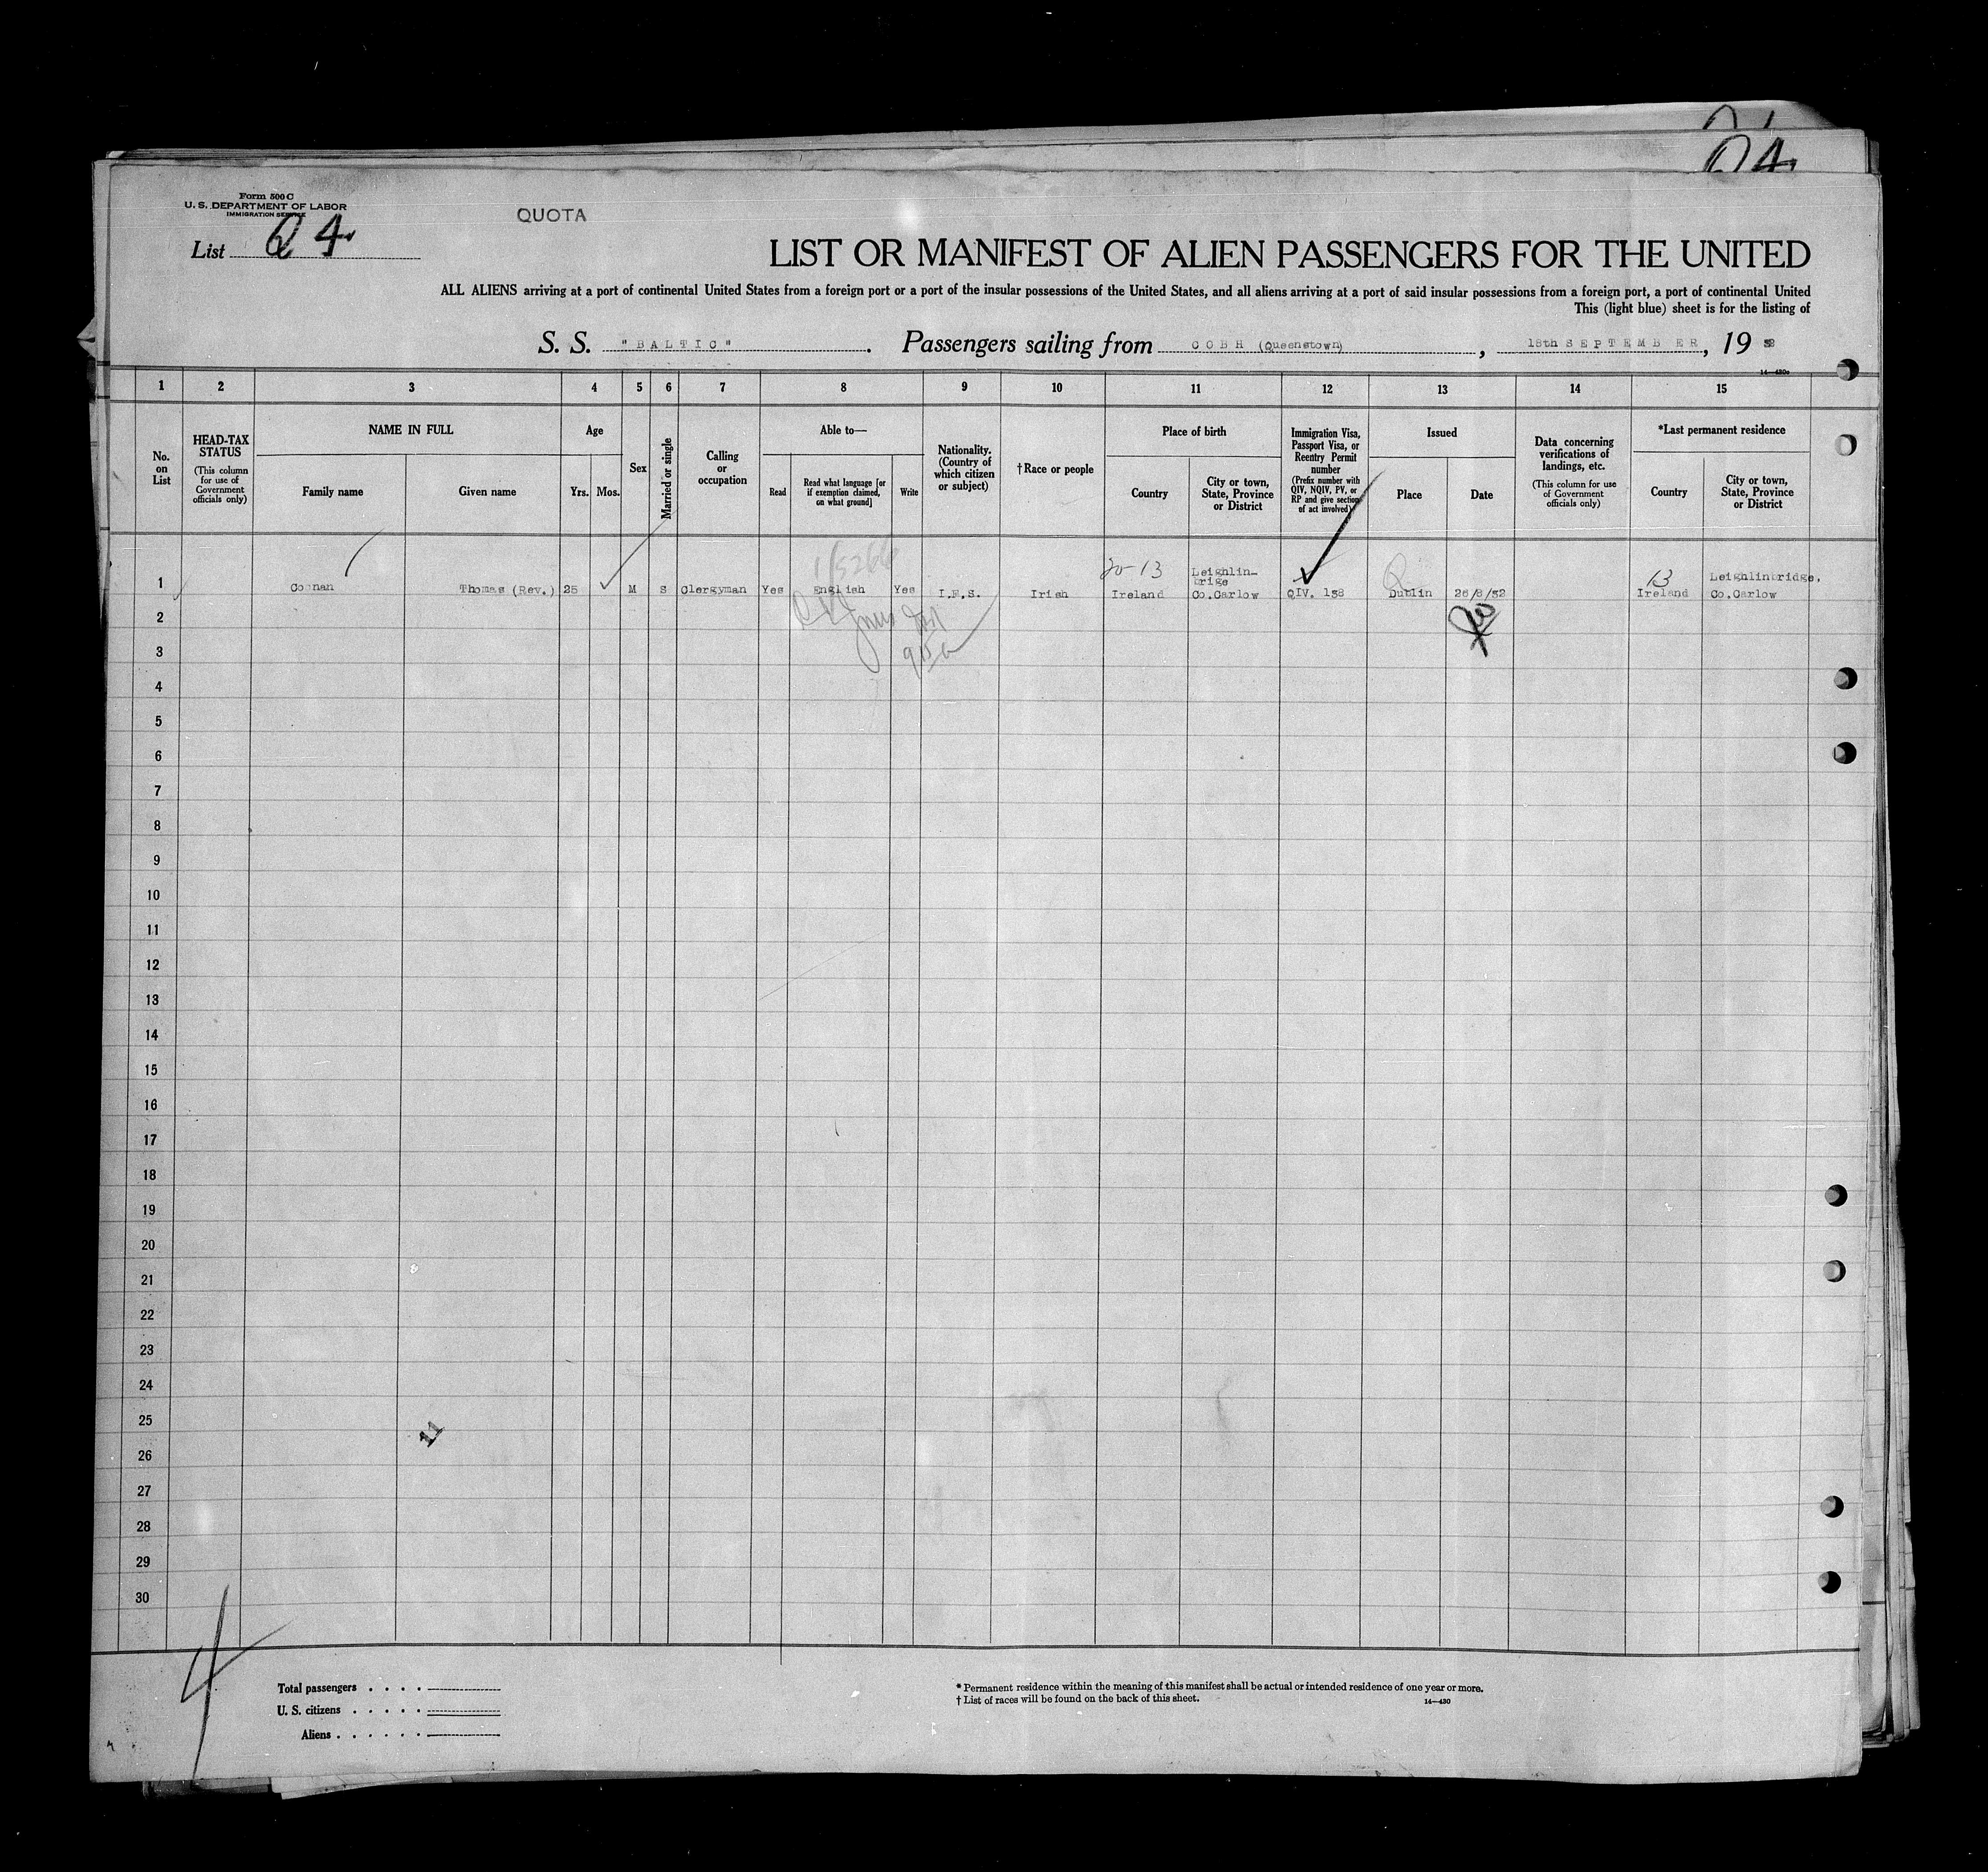 Form 500 C
U. S. DEPARTMENT OF LABOR
IMMIGRATION SERVICE
QUOTA
List Q 4
LIST OR MANIFEST OF ALIEN PASSENGERS FOR THE UNITED
ALL ALIENS arriving at a port of continental United States from a foreign port or a port of the insular possessions of the United States, and all aliens arriving at a port of said insular possessions from a foreign port, a port of continental United
This (light blue) sheet is for the listing of
S. S. "BALTIC". Passengers sailing from COBH (Queenstown), 18th SEPTEMBER, 19 32
14—430c
1 2 3 4 5 6 7 8 9 10 11 12 13 14 15
No. on List
HEAD-TAX STATUS
(This column for use of Government officials only)
NAME IN FULL
Family name
Given name
Age
Yrs. Mos.
Sex
Married or single
Calling or occupation
Able to—
Read
Read what language [or if exemption claimed, on what ground]
Write
Nationality. (Country of which citizen or subject)
†Race or people
Place of birth
Country
City or town, State, Province or District
Immigration Visa, Passport Visa, or Reentry Permit number
(Prefix number with QIV, NQIV, PV, or RP and give section of act involved)
Issued
Place
Date
Data concerning verifications of landings, etc.
(This column for use of Government officials only)
*Last permanent residence
Country
City or town, State, Province or District
20-13 Leighlin- 13 Leighlinbridge,
brige
1 Coonan Thomas (Rev.) 25 M S Clergyman Yes English Yes I.F.S. Irish Ireland Co.Carlow QIV. 138 Dublin 26/8/32 Ireland Co.Carlow
2
3
4
5
6
7
8
9
10
11
12
13
14
15
16
17
18
19
20
21
22
23
24
25
26
27
28
29
30
Total passengers . . . .
U. S. citizens . . . . .
Aliens . . . . . .
* Permanent residence within the meaning of this manifest shall be actual or intended residence of one year or more.
† List of races will be found on the back of this sheet.
14—430